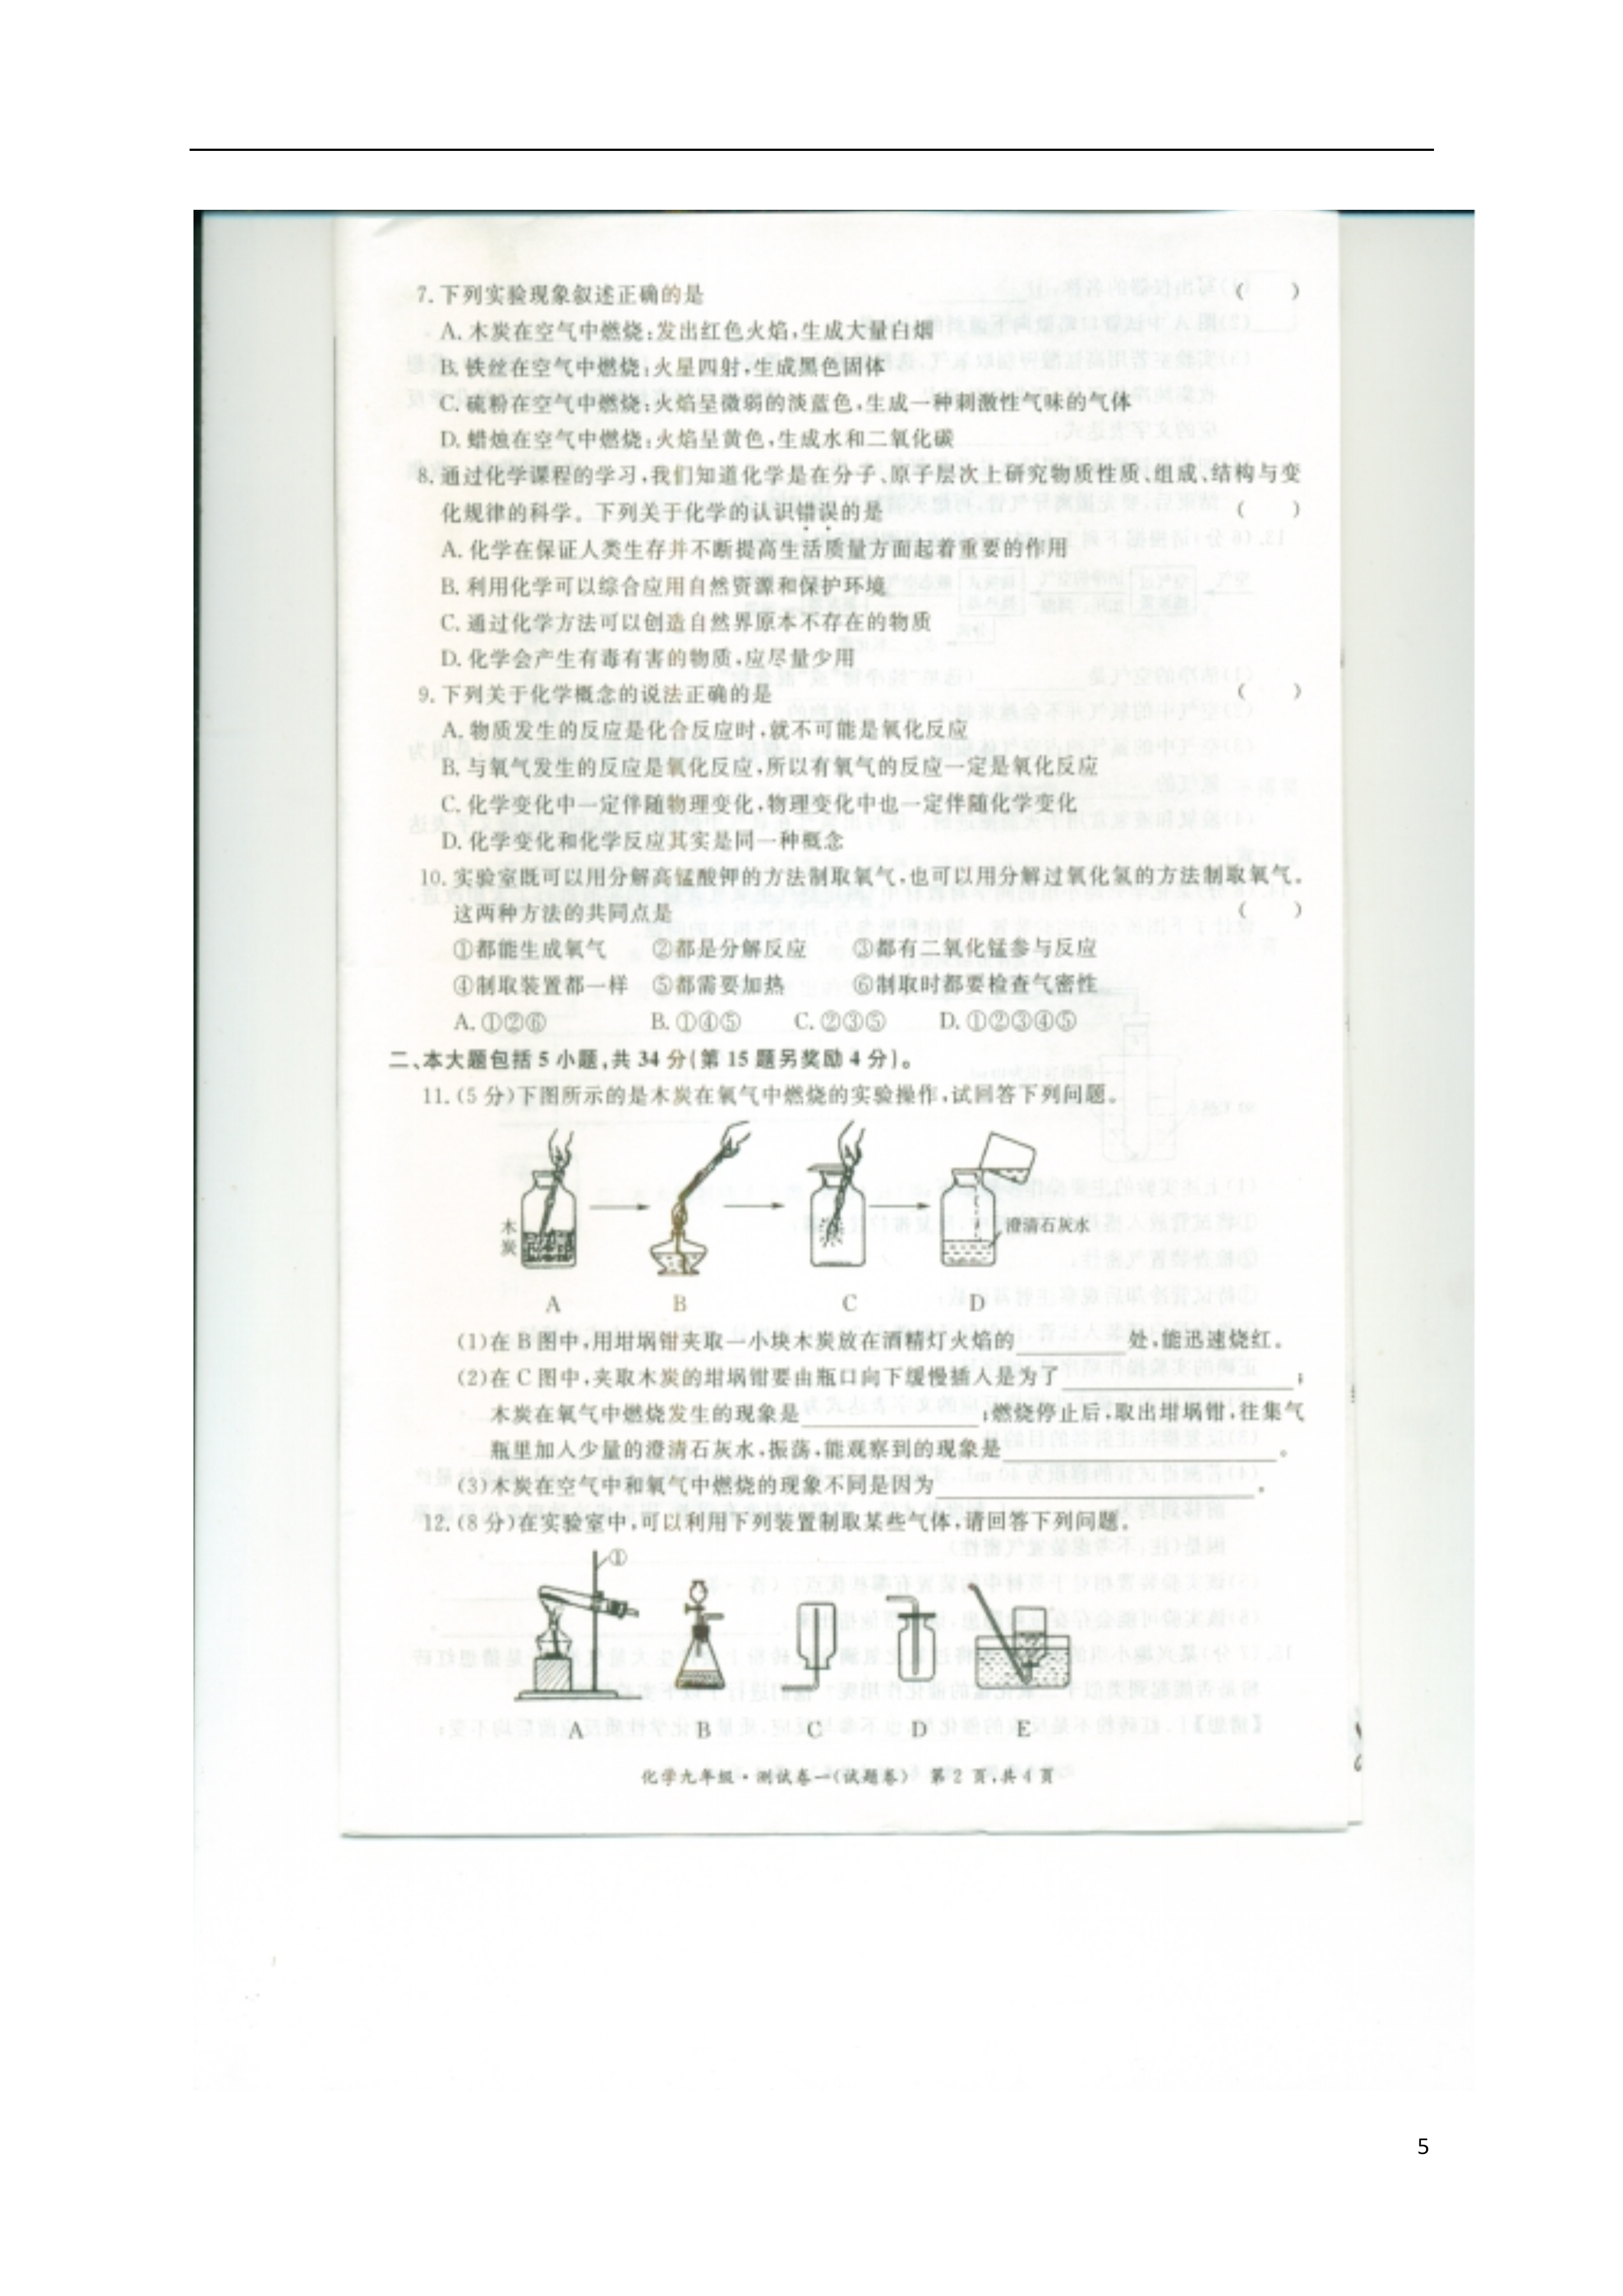 7. 下列实验现象叙述正确的是 ( )
A. 木炭在空气中燃烧:发出红色火焰,生成大量白烟
B. 铁丝在空气中燃烧:火星四射,生成黑色固体
C. 硫粉在空气中燃烧:火焰呈微弱的淡蓝色,生成一种刺激性气味的气体
D. 蜡烛在空气中燃烧:火焰呈黄色,生成水和二氧化碳
8. 通过化学课程的学习,我们知道化学是在分子、原子层次上研究物质性质、组成、结构与变
化规律的科学。下列关于化学的认识错误的是 ( )
A. 化学在保证人类生存并不断提高生活质量方面起着重要的作用
B. 利用化学可以综合应用自然资源和保护环境
C. 通过化学方法可以创造自然界原本不存在的物质
D. 化学会产生有毒有害的物质,应尽量少用
9. 下列关于化学概念的说法正确的是 ( )
A. 物质发生的反应是化合反应时,就不可能是氧化反应
B. 与氧气发生的反应是氧化反应,所以有氧气的反应一定是氧化反应
C. 化学变化中一定伴随物理变化,物理变化中也一定伴随化学变化
D. 化学变化和化学反应其实是同一种概念
10. 实验室既可以用分解高锰酸钾的方法制取氧气,也可以用分解过氧化氢的方法制取氧气。
这两种方法的共同点是 ( )
①都能生成氧气 ②都是分解反应 ③都有二氧化锰参与反应
④制取装置都一样 ⑤都需要加热 ⑥制取时都要检查气密性
A. ①②⑥ B. ①④⑤ C. ②③⑤ D. ①②③④⑤
二、本大题包括 5 小题,共 34 分(第 15 题另奖励 4 分)。
11. (5 分)下图所示的是木炭在氧气中燃烧的实验操作,试回答下列问题。
木炭
澄清石灰水
A B C D
(1)在 B 图中,用坩埚钳夹取一小块木炭放在酒精灯火焰的________处,能迅速烧红。
(2)在 C 图中,夹取木炭的坩埚钳要由瓶口向下缓慢插入是为了________;
木炭在氧气中燃烧发生的现象是________;燃烧停止后,取出坩埚钳,往集气
瓶里加入少量的澄清石灰水,振荡,能观察到的现象是________。
(3)木炭在空气中和氧气中燃烧的现象不同是因为________。
12. (8 分)在实验室中,可以利用下列装置制取某些气体,请回答下列问题。
①
A B C D E
化学九年级·测试卷一(试题卷) 第 2 页,共 4 页
5